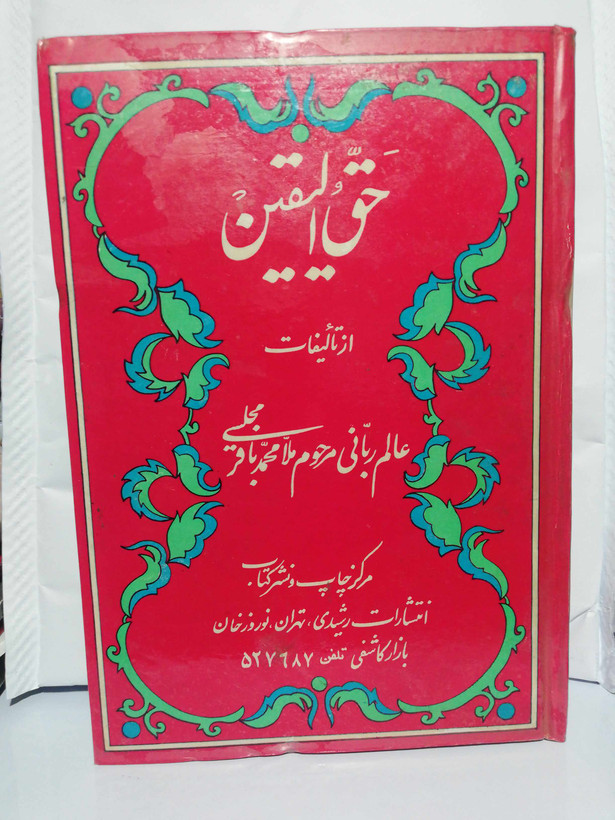 حَقُّ الیقین
از تألیفات
عالم ربّانی مرحوم ملّا محمّد باقر مجلسی
مرکز چاپ و نشر کتاب
انتشارات رشیدی، تهران، نوروزخان
بازار کاشفی تلفن ۵۲۷۶۸۷